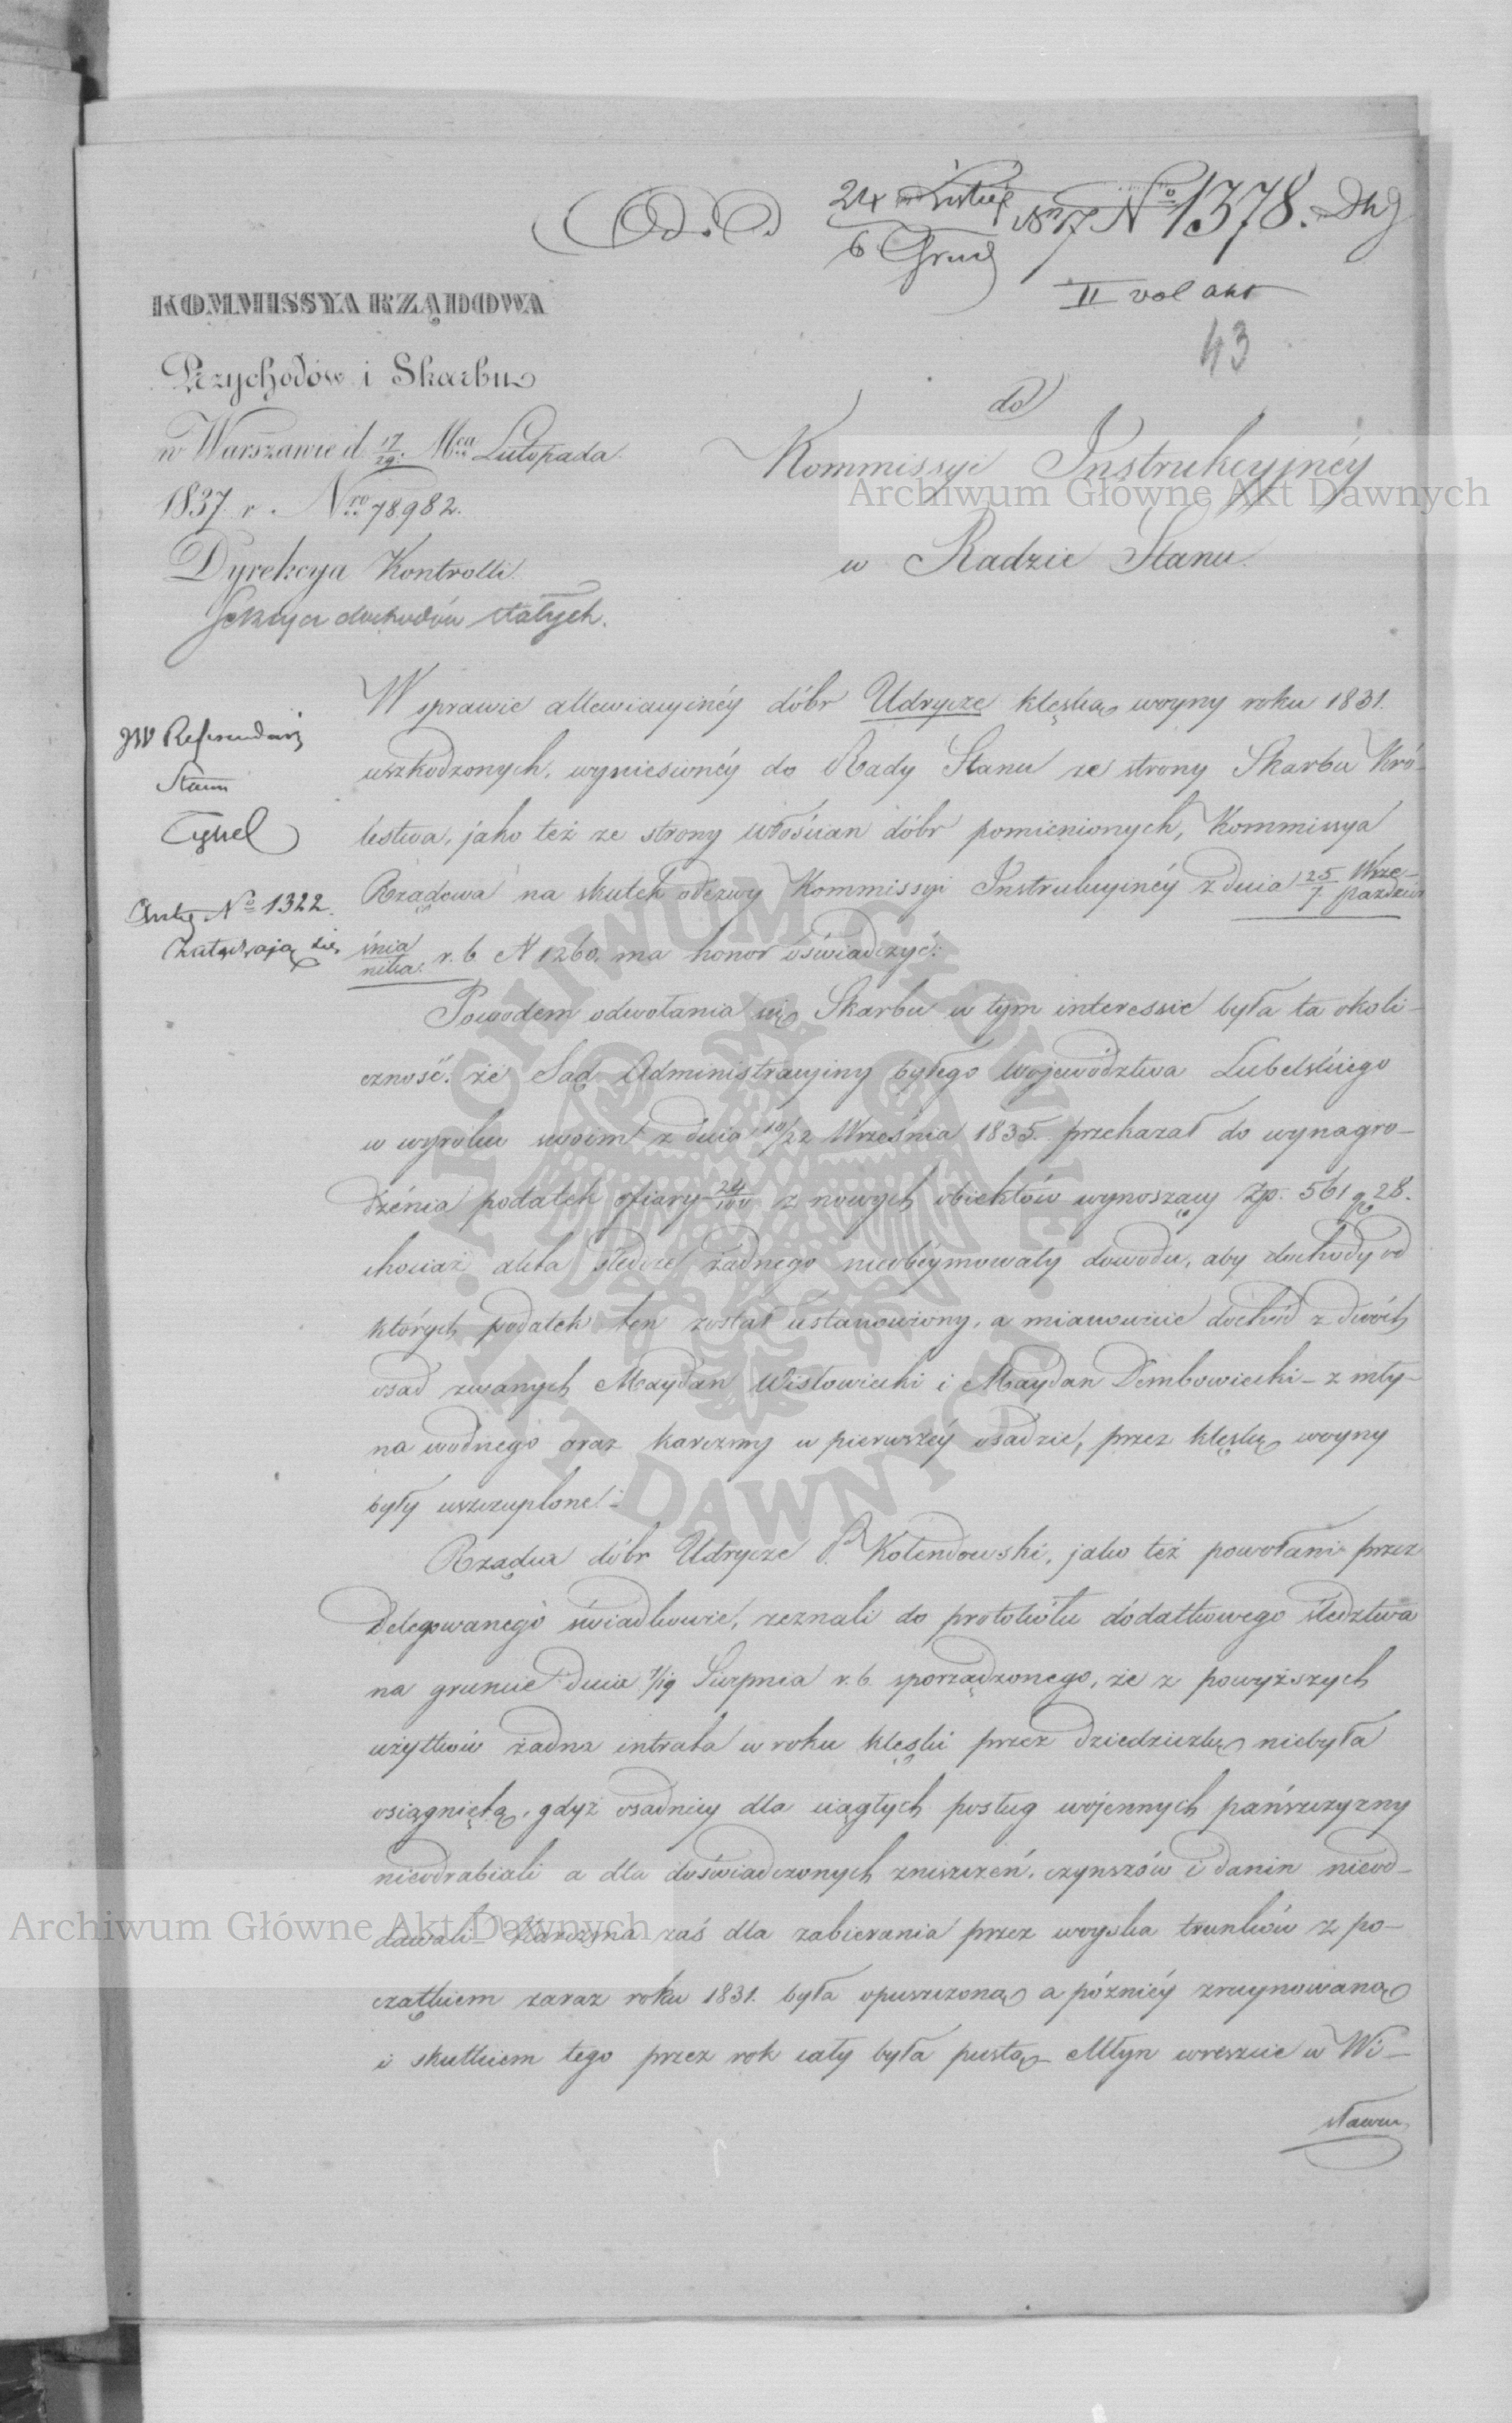 24 Listop
6 Grud 1837 № 1378.
II vol akt
43
KOMMISSYA RZĄDOWA
Przychodów i Skarbu
w Warszawie d. 17/29. Mca Listopada
1837 r. Nro 78982.
Dyrekcya Kontrolli.
Sekcya dochodów stałych.
do
Kommissyi Instrukcyjnéy
w Radzie Stanu.
JW Referendarz
Stanu
Anty № 1322.
Załatwiają się
W sprawie allewiacyinéy dóbr Udrycze klęską woyny roku 1831.
uszkodzonych, wyniesionéy do Rady Stanu ze strony Skarbu Kró-
lestwa, jako też ze strony włościan dóbr pomienionych, Kommissya
Rządowa na skutek odezwy Kommissyi Instrukcyinéy z dnia 25/7 Wrze-/Paździer
śnia/nika r. b. N 1260. ma honor oświadczyć:
Powodem odwołania się Skarbu w tym interessie była ta okoli-
czność, że Sąd Administracyiny byłego Województwa Lubelskiego
w wyroku swoim z dnia 10/22 Września 1835. przekazał do wynagro-
dzenia podatek ofiary 24/100 z nowych obiektów wynoszący Złp. 561 gr 28.
chociaż akta śledcze żadnego nieobéymowały dowodu, aby dochody od
których podatek ten został ustanowiony, a mianowicie dochód z dwóch
osad zwanych Maydan Wisłowiecki i Maydan Dembowiecki - z mły-
na wodnego oraz karczmy w pierwszéy osadzie, przez klęskę woyny
były uszczuplone.-
Rządca dóbr Udrycze P. Kolendowski, jako też powołani przez
Delegowanego świadkowie, zeznali do protokółu dodatkowego śledztwa
na gruncie dnia 7/19 Sierpnia r. b. sporządzonego, że z powyższych
użytków żadna intrata w roku klęski przez dziedziczkę niebyła
osiągniętą, gdyż osadnicy dla ciągłych posług wojennych pańszczyzny
nieodrabiali a dla doświadczonych zniszczeń, czynszów i danin nieod-
dawali - Karczma zaś dla zabierania przez woyska trunków z po-
czątkiem zaraz roku 1831. była opuszczoną a późniéy zruynowaną
i skutkiem tego przez rok cały była pustą - Młyn wreszcie w Wi-
sławcu
Archiwum Główne Akt Dawnych
Archiwum Główne Akt Dawnych
ARCHIWUM GŁÓWNE
AKT DAWNYCH